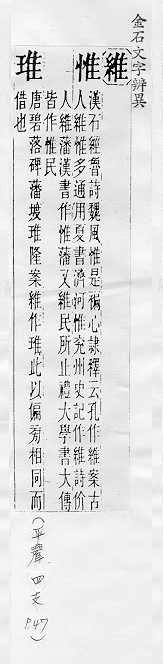 金石文字辨異
維
惟
漢石經魯詩魏風惟是褊心隷釋云孔作維案古
人維惟多通用夏書濟河惟兖州史記作維詩价
人維藩漢書作惟藩又維民所止禮大學書大傳
皆作惟民
琟
唐碧落碑藩坡琟隆案維作琟此以偏旁相同而
借也
(平聲 四支 P.47)